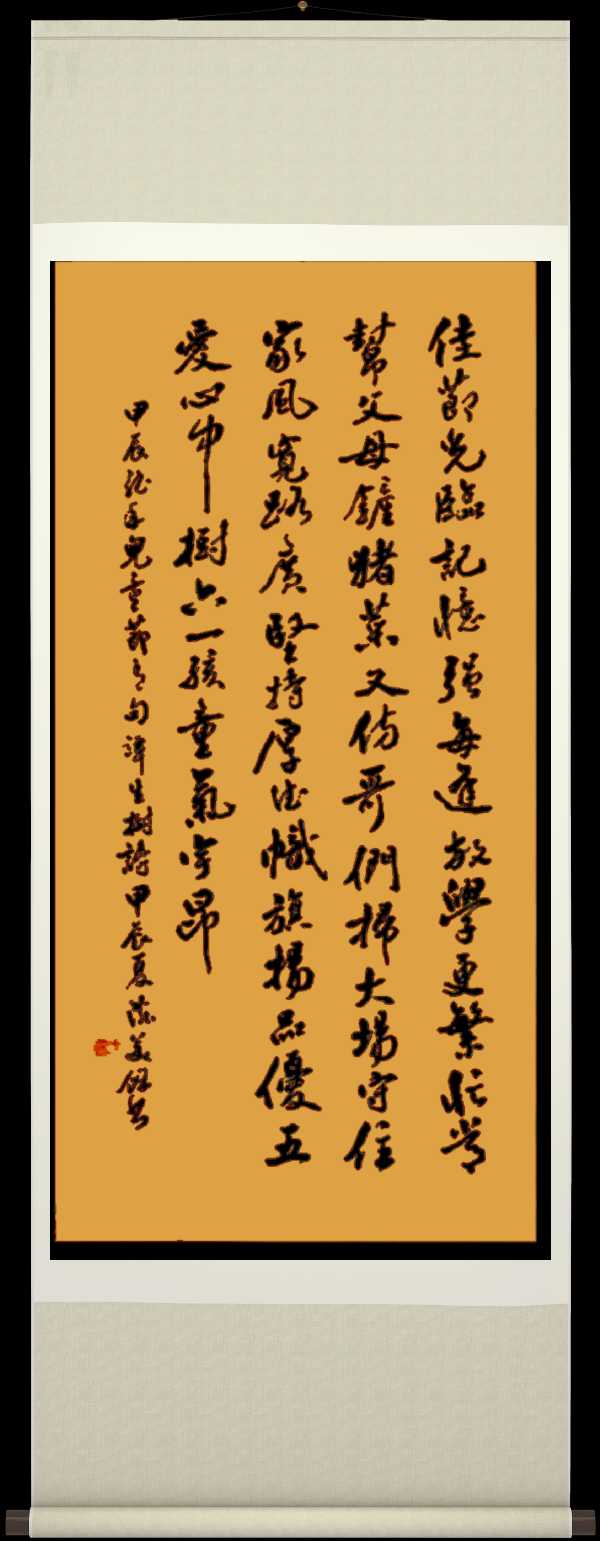 佳節光臨記憶强每逢放學更繁忙常
幫父母鏟猪菜又傍哥們掃大場守住
家風寬路廣堅持厚德幟旗揚品優五
愛心中樹六一孩童氣宇昂
甲辰兒童節之句譚生樹詩甲辰夏美書